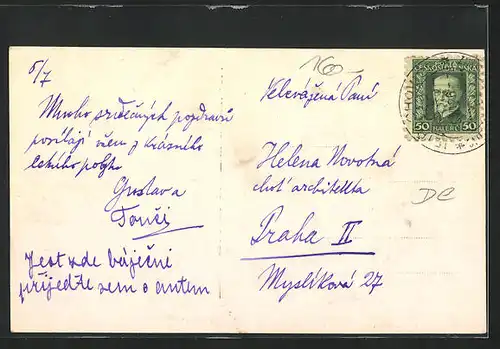 5/7
Mnoho srdečných pozdravů
posílají všem z krásného
letního pobytu
Gustav a
Jest zde báječně
přijeďte sem s autem
160-
Velevážená Paní
Helena Novotná
choť architekta
Praha II
Myslíkova 27
DC
50 50